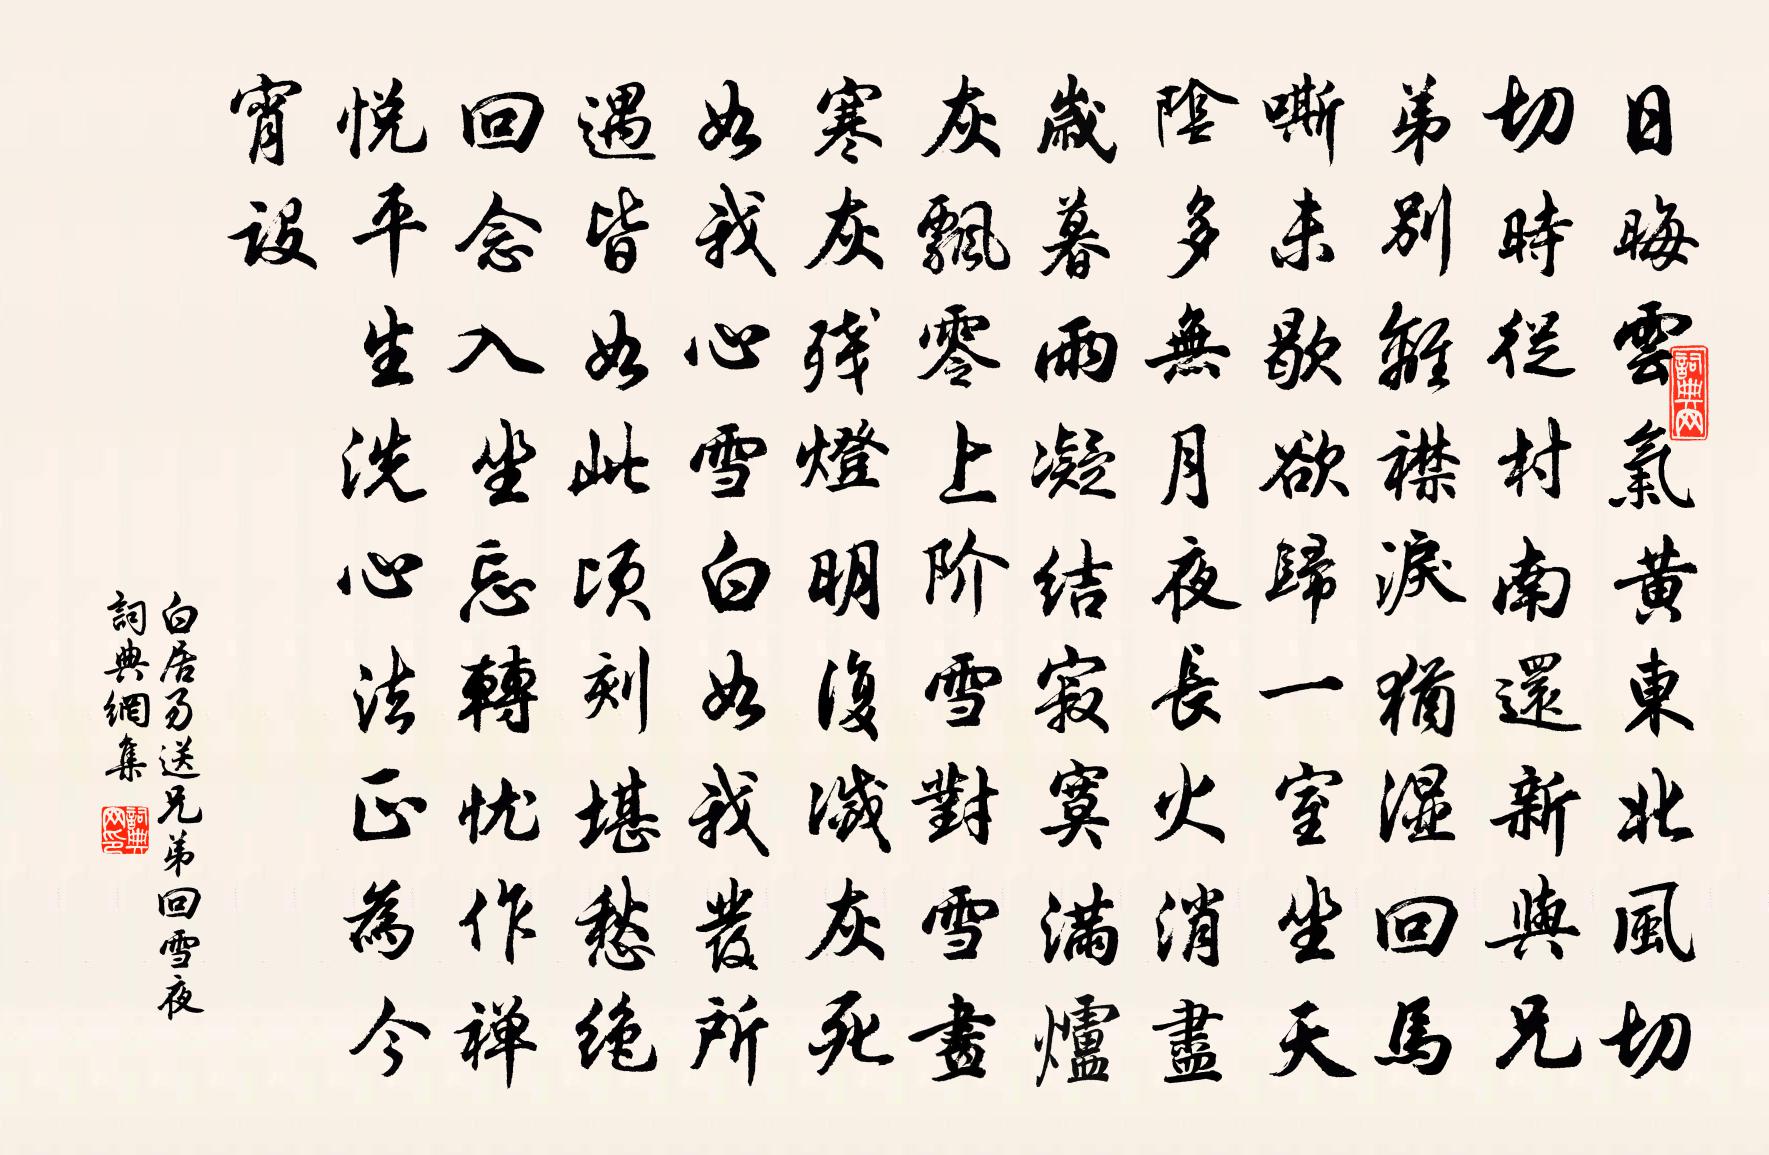 日晦雲氣黃東北風切
切時從村南還新與兄
弟别離襟淚猶湿回馬
嘶未歇欲歸一室坐天
陰多無月夜長火消盡
歲暮雨凝結寂寞滿爐
灰飄零上阶雪對雪畫
寒灰残燈明復滅灰死
如我心雪白如我發所
遇皆如此頃刻堪愁绝
回念入坐忘轉忧作禅
悦平生洗心法正為今
宵設
白居易送兄弟回雪夜
詞典網集
詞典网
詞典网印